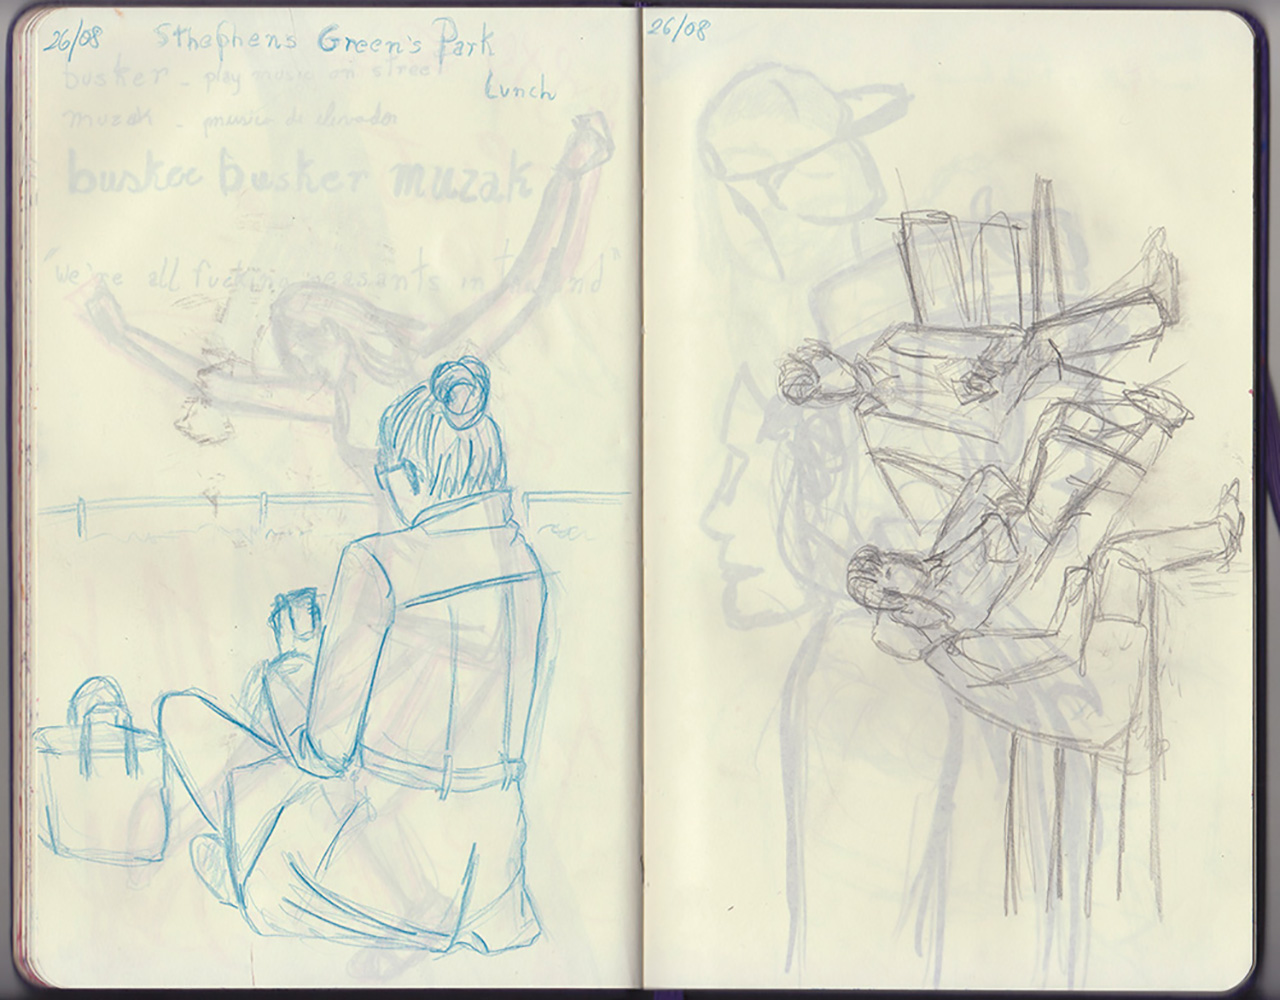 26/08 Sthephens Green's Park
busker - play music on street
Lunch
muzak - musica de elevador
busker busker muzak
"we're all fucking peasants in the end"
26/08